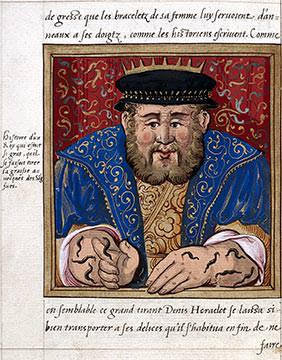 de gresse que les braceletz de sa femme luy servoient d'an-
neaux a ses doigtz, comme les historiens escrivent. Comme
Histoire d'un
Roy qui estoit
si gras, qu'il
se faisoit tirer
la gresse au
en semblable ce grand tirant Denis Heracleot se laissa si
bien transporter a ses delices qu'il s'habitua en fin de ne
faire